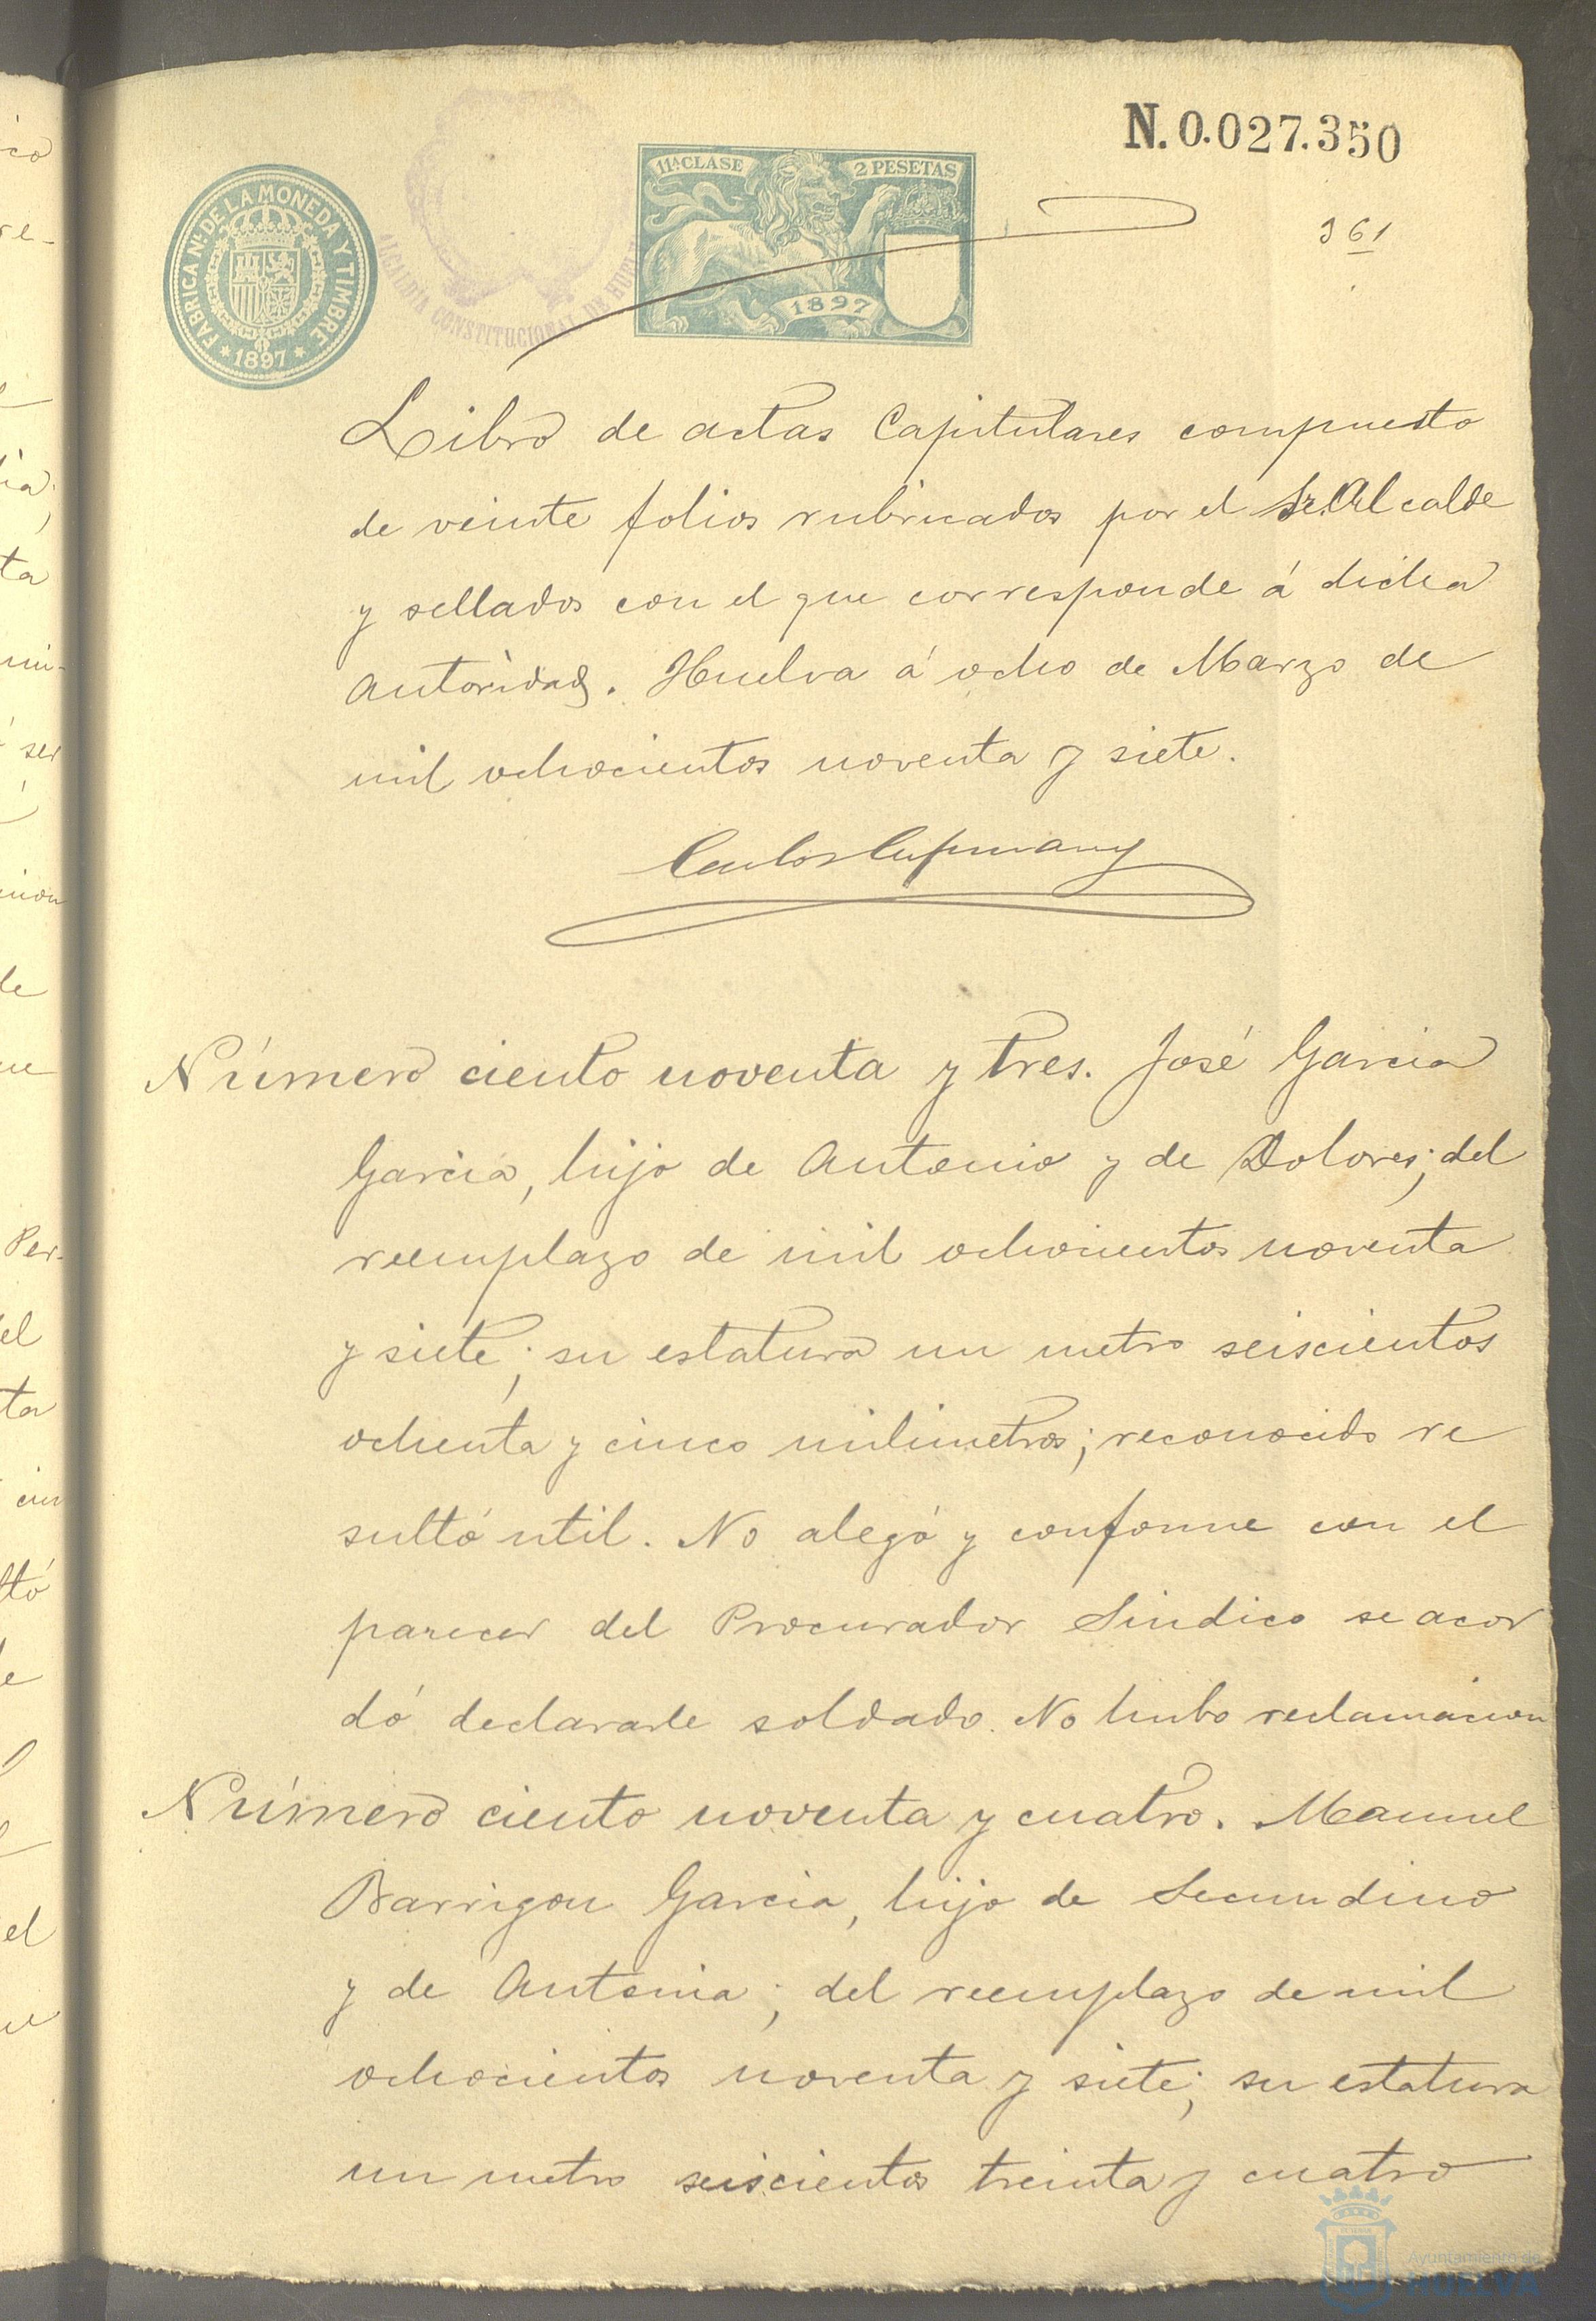 N. 0.027.350
FABRICA Nᴸ DE LA MONEDA Y TIMBRE
* 1897 *
ALCALDIA CONSTITUCIONAL DE
11ᴬ CLASE
2 PESETAS
1897
361
Libro de actas Capitulares compuesto
de veinte folios rubricados por el Sr. Alcalde
y sellados con el que corresponde á dicha
autoridad. Huelva á ocho de Marzo de
mil ochocientos noventa y siete.
Carlos
Número ciento noventa y tres. José Garcia
Garcia, hijo de Antonio y de Dolores; del
reemplazo de mil ochocientos noventa
y siete; su estatura un metro seiscientos
ochenta y cinco milimetros; reconocido re
sultó util. No alegó y conforme con el
parecer del Procurador Sindico se acor
dó declararle soldado. No hubo reclamacion
Número ciento noventa y cuatro. Manuel
Barrigon Garcia, hijo de Secundino
y de Antonia; del reemplazo de mil
ochocientos noventa y siete; su estatura
un metro seiscientos treinta y cuatro
Ayuntamiento de
HUELVA